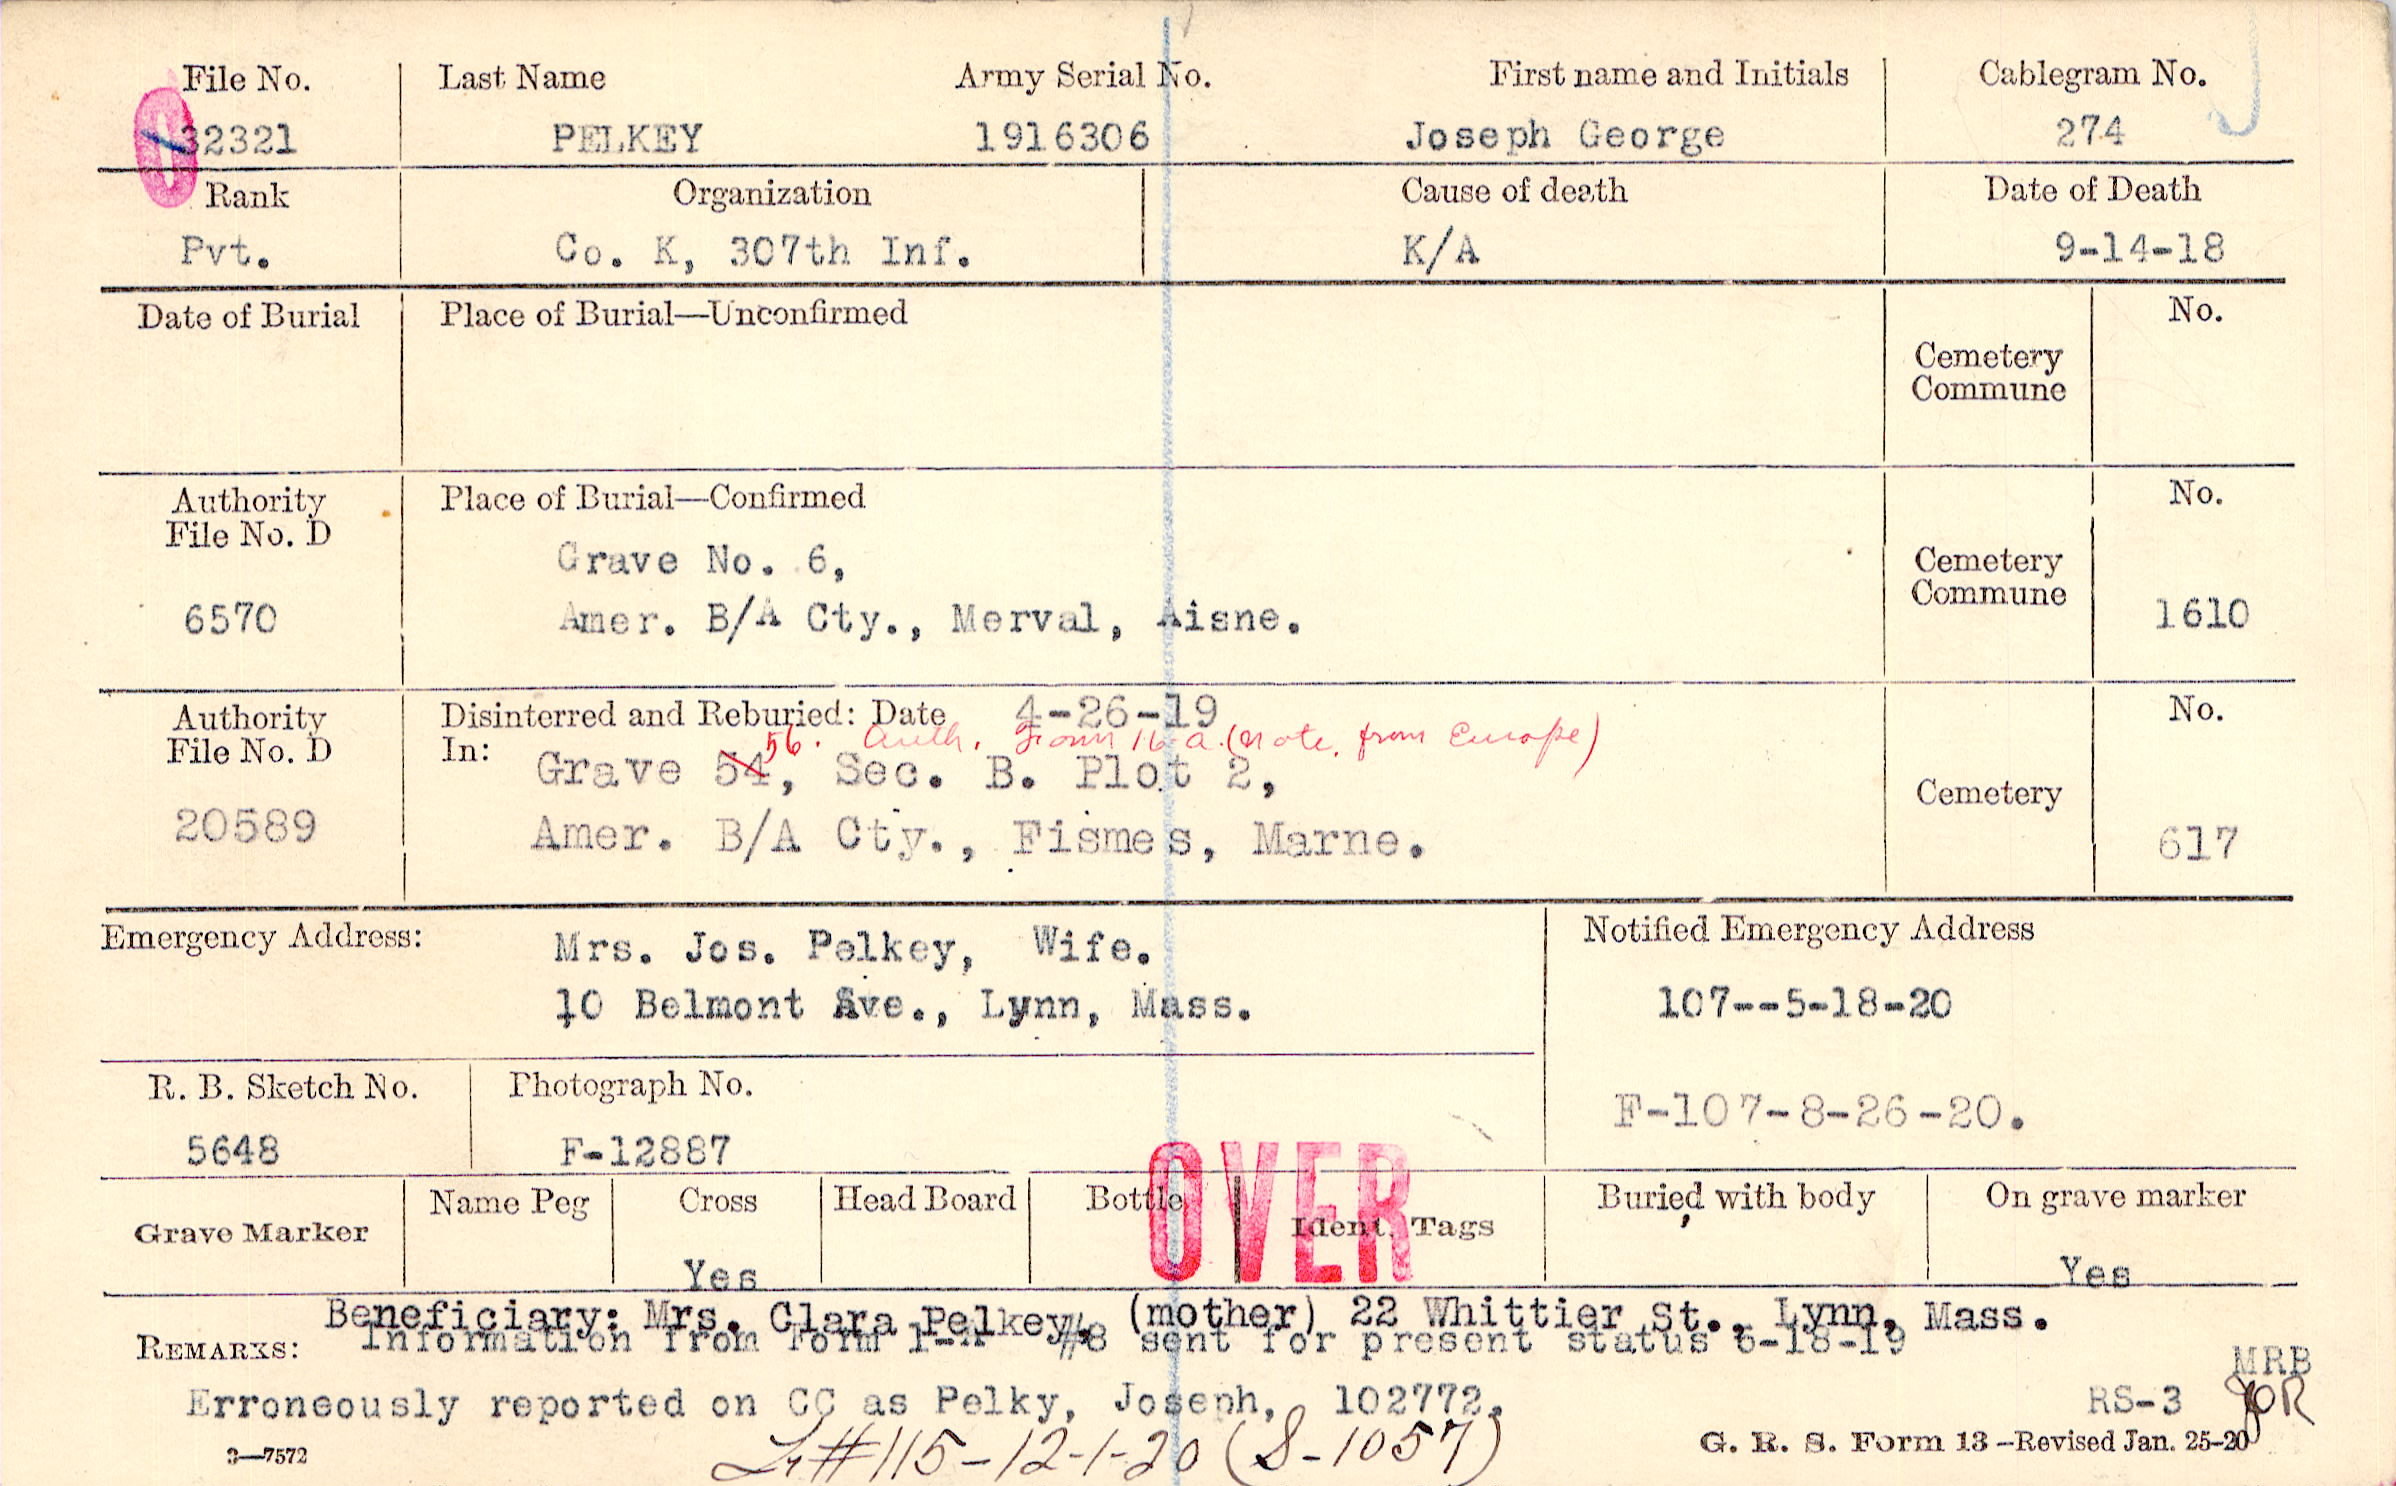 File No. Last Name Army Serial No. First name and Initials Cablegram No.
32321 PELKEY 1916306 Joseph George 274
Rank Organization Cause of death Date of Death
Pvt. Co. K, 307th Inf. K/A 9-14-18
Date of Burial Place of Burial—Unconfirmed No.
Cemetery
Commune
Authority Place of Burial—Confirmed No.
File No. D
Grave No. 6, Cemetery
Commune
6570 Amer. B/A Cty., Merval, Aisne. 1610
Authority Disinterred and Reburied: Date 4-26-19 No.
56. Auth. Form 16-a (Note from Europe)
File No. D In: Grave 54, Sec. B. Plot 2,
Cemetery
20589 Amer. B/A Cty., Fismes, Marne. 617
Emergency Address: Mrs. Jos. Pelkey, Wife. Notified Emergency Address
10 Belmont Ave., Lynn, Mass. 107--5-18-20
R. B. Sketch No. Photograph No.
F-107-8-26-20.
5648 F-12887
OVER
Grave Marker Name Peg Cross Head Board Bottle Ident. Tags Buried with body On grave marker
Yes Yes
Beneficiary: Mrs. Clara Pelkey, (mother) 22 Whittier St., Lynn, Mass.
REMARKS: Information from Form 1-A #8 sent for present status 6-18-19
MRB
Erroneously reported on CC as Pelky, Joseph, 102772. RS-3 JOR
3—7572 #115-12-1-20 (S-1057) G. R. S. Form 13—Revised Jan. 25-20